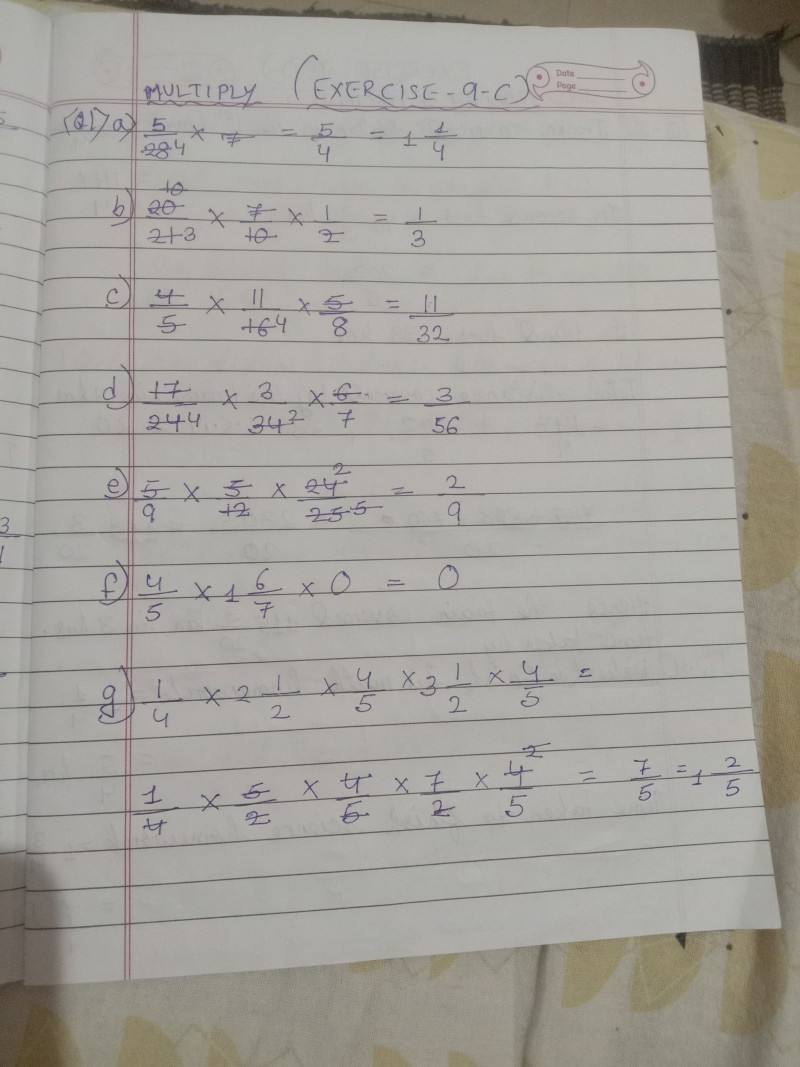 MULTIPLY (EXERCISE-9-C)
Date
Page
(Q1) a) 5/28 4 × 7 = 5/4 = 1 1/4
b) 20 10/21 3 × 7/10 × 1/2 = 1/3
c) 4/5 × 11/16 4 × 5/8 = 11/32
d) 17/24 4 × 3/34 2 × 6/7 = 3/56
e) 5/9 × 5/12 × 24 2/25 5 = 2/9
f) 4/5 × 1 6/7 × 0 = 0
g) 1/4 × 2 1/2 × 4/5 × 3 1/2 × 4/5 =
1/4 × 5/2 × 4/5 × 7/2 × 4 2/5 = 7/5 = 1 2/5